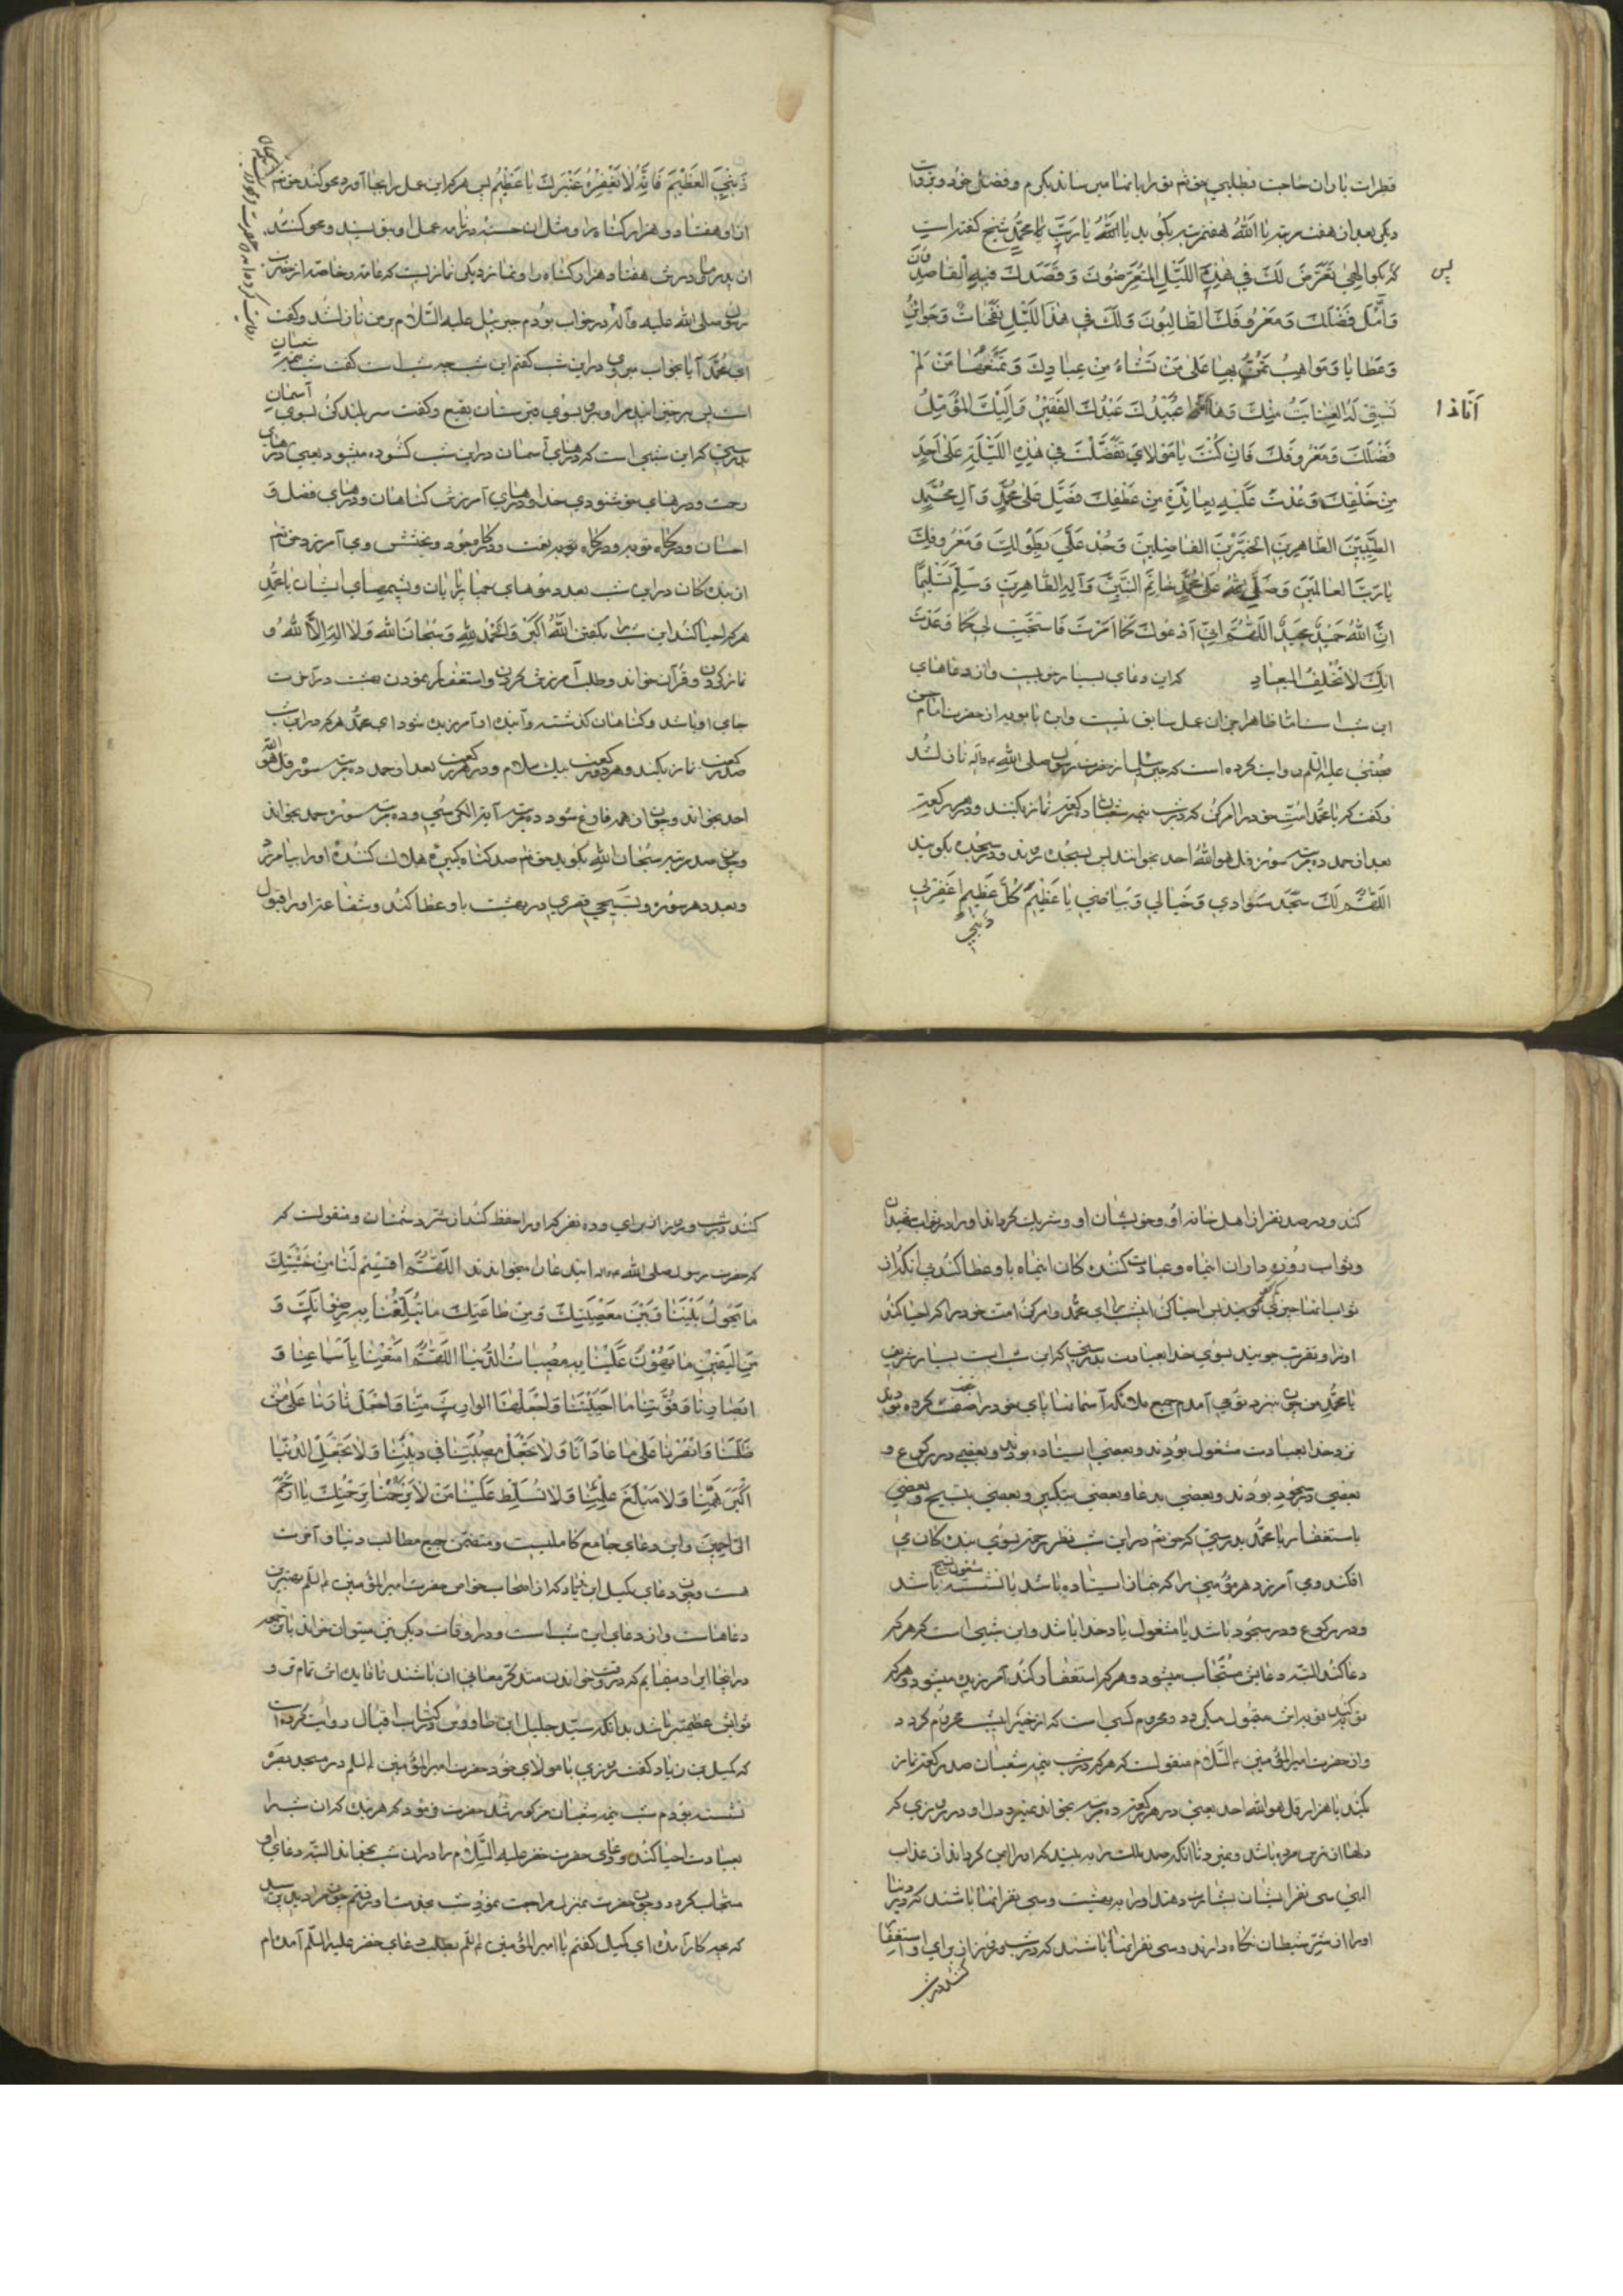 قطرات باران حاجت بطلبی حق تعالی ترا بانها میرساند بکرم و فضل خود و بروایت
دیکر بعد ازان هفت مرتبه یا الله هفت مرتبه بکوید یا الله یا رب یا محمد شیخ کفته است
پس
که بکو الهی تعرض لک فی هذه اللیل المتعرضون وقصدک فیه القاصدون
وَاَمَّلَ فَضْلَكَ وَمَعْرُوفَكَ الطَّالِبُونَ وَلَكَ فِي هٰذَا اللَّيْلِ نَفَحَاتٌ وَجَوَائِزُ
وَعَطَايَا وَمَوَاهِبُ تَمُنُّ بِهَا عَلَى مَنْ تَشَاءُ مِنْ عِبَادِكَ وَتَمْنَعُهَا مَنْ لَمْ
تَسْبِقْ لَهُ الْعِنَايَةُ مِنْكَ وَهَا عُبَيْدُكَ عَبْدُكَ الْفَقِيرُ وَاِلَيْكَ الْمُؤَمِّلُ
فَضْلَكَ وَمَعْرُوفَكَ فَاِنْ كُنْتَ يَا مَوْلَايَ تَفَضَّلْتَ فِي هٰذِهِ اللَّيْلَةِ عَلَى اَحَدٍ
مِنْ خَلْقِكَ وَعُدْتَ عَلَيْهِ بِعَائِدَةٍ مِنْ عَطْفِكَ فَصَلِّ عَلَى مُحَمَّدٍ وَآلِ مُحَمَّدٍ
الطَّيِّبِينَ الطَّاهِرِينَ الْخَيِّرِينَ الْفَاضِلِينَ وَجُدْ عَلَيَّ بِطَوْلِكَ وَمَعْرُوفِكَ
يَا رَبَّ الْعَالَمِينَ وَصَلَّى اللهُ عَلَى مُحَمَّدٍ خَاتَمِ النَّبِيِّينَ وَآلِهِ الطَّاهِرِينَ وَسَلَّمَ تَسْلِيمًا
اِنَّ اللهَ حَمِيدٌ مَجِيدٌ اللّٰهُمَّ اِنِّي اَدْعُوكَ كَمَا اَمَرْتَ فَاسْتَجِبْ لِي كَمَا وَعَدْتَ
اِنَّكَ لَا تُخْلِفُ الْمِيعَادَ که این دعای بسیار خوبیست و از دعاهای
این شب است اما ظاهرا جزء ان عمل سابق نیست و ابن بابویه از حضرت امام حسن
مجتبی علیه السلم روایت کرده است که جبرئیل از حضرت رسول صلی الله علیه واله نازل شد
وکفت که یا محمد امت خود را امر کن که در شب نیمه شعبان ده رکعت نماز بکنند و در هر رکعتی
بعد از حمد ده مرتبه سوره قل هو الله احد بخوانند پس بسجده روند و در سجده بکویند
اَللّٰهُمَّ لَكَ سَجَدَ سَوَادِي وَخَيَالِي وَبَيَاضِي يَا عَظِيمَ كُلِّ عَظِيمٍ اغْفِرْ لِي
ذنبی
ذَنْبِيَ الْعَظِيمَ فَاِنَّهُ لَا يَغْفِرُهُ غَيْرُكَ يَا عَظِيمُ پس هر که این عمل را بجا آورد محو کند حق تعالی
از او هفتاد و دو هزار کناه را و مثل ان حسنه در نامه عمل او بنویسند و محو کند
رسول صلی الله علیه وآله در خواب بودم جبرئیل علیه السلام بر من نازل شد وکفت
ای محمد آیا بخواب میروی در این شب کفتم این شب چه شب است کفت شب نیمه شعبان
است پس برخیزانید مرا و برد بسوی قبرستان بقیع وکفت سر بلند کن بسوی آسمان
بدرستی که این شبی است که درهای آسمان در این شب کشوده میشود یعنی درهای
رحمت و درهای خوشنودی خدا و درهای آمرزش کناهان و درهای فضل و
احسان و درکاه توبه و درکاه نعمت و درکاه وجود و بخشش ومی آمرزد حق تعالی
از بندکان در این شب بعدد موهای چهارپایان و پشمهای ایشان یا محمد
هر که احیا کند این شب را بکفتن الله اکبر والحمد لله وسبحان الله ولا اله الا الله و
نماز کردن و قرآن خواندن و طلب آمرزش کردن واستغفار نمودن بهشت در آخرت
جای او باشد و کناهان کذشته و آینده او آمرزیده شود ای محمد هر که در این شب
صد رکعت نماز بکند و هر دو رکعت بیک سلام و در هر رکعت بعد از حمد ده مرتبه سوره قل هو الله
احد بخواند و چون از همه فارغ شود ده مرتبه آیة الکرسی و ده مرتبه سوره حمد بخواند
و صد مرتبه سبحان الله بکوید حق تعالی صد کناه کبیره هلاک کننده او را بیامرزد
و بعدد هر سوره و تسبیحی قصری در بهشت باو عطا کند و شفاعت او را قبول
کند و در صد نفر از اهل خانه او و خویشان او و شریک کرداند او را در ثواب شهیدان
و ثواب روزه داران اینماه و عبادت کنندکان اینماه باو عطا کند بی انکه از
ثواب انها چیزی کم کند پس احیا کن این شب را ای محمد و امر کن امت خود را که احیا کنند
او را و تقرب جویند بسوی خدا بعبادت بدرستی که این شب است بسیار شریف
یا محمد من چون بنزد تو می آمدم جمیع ملائکه آسمانها پای خود را صف کرده بودند
نزد خدا بعبادت مشغول بودند و بعضی ایستاده بودند و بعضی در رکوع و
بعضی در سجود بودند و بعضی بدعا و بعضی بتکبیر و بعضی بتسبیح و بعضی
باستغفار یا محمد بدرستی که حق تعالی در این شب نظر رحمت بسوی بندکان می
افکند ومی آمرزد هر مؤمنی را که بنماز ایستاده باشد یا نشسته مشغول تسبیح باشد
و در رکوع و در سجود باشد یا مشغول یاد خدا باشد و این شبی است که هر که
دعا کند البته دعایش مستجاب میشود و هر که استغفار کند آمرزیده میشود و هر که
توبه کند توبه اش مقبول میکردد و محروم کسی است که از خیر این شب محروم کردد
و از حضرت امیر المؤمنین علیه السلام منقول است که هر که در شب نیمه شعبان صد رکعت نماز
بکند با هزار قل هو الله احد یعنی در هر رکعت ده مرتبه بخواند نمیرد دل او در روزی که
دلها از ترس مرده باشد و نمیرد تا آنکه صد ملک را ببیند که او را ایمن کردانند از عذاب
الهی سی نفر ایشان بشارت دهند او را به بهشت و سی نفر انها باشند که در دنیا
او را از شر شیطان نکاه دارند و سی نفر انها باشند که در شب و روز از برای او استغفار
کنند در شب
کنند در شب و روز از برای او و ده نفر که او را حفظ کنند از شر دشمنان و منقولست که
که حضرت رسول صلی الله علیه واله این دعا را میخواندند اَللّٰهُمَّ اقْسِمْ لَنَا مِنْ خَشْيَتِكَ
مَا يَحُولُ بَيْنَنَا وَبَيْنَ مَعْصِيَتِكَ وَمِنْ طَاعَتِكَ مَا تُبَلِّغُنَا بِهِ رِضْوَانَكَ وَ
مِنَ الْيَقِينِ مَا يَهُونُ عَلَيْنَا بِهِ مُصِيبَاتُ الدُّنْيَا اَللّٰهُمَّ اَمْتِعْنَا بِاَسْمَاعِنَا وَ
اَبْصَارِنَا وَقُوَّتِنَا مَا اَحْيَيْتَنَا وَاجْعَلْهَا الْوَارِثَ مِنَّا وَاجْعَلْ ثَارَنَا عَلَى مَنْ
ظَلَمَنَا وَانْصُرْنَا عَلَى مَنْ عَادَانَا وَلَا تَجْعَلْ مُصِيبَتَنَا فِي دِينِنَا وَلَا تَجْعَلِ الدُّنْيَا
اَكْبَرَ هَمِّنَا وَلَا مَبْلَغَ عِلْمِنَا وَلَا تُسَلِّطْ عَلَيْنَا مَنْ لَا يَرْحَمُنَا بِرَحْمَتِكَ يَا اَرْحَمَ
الرَّاحِمِينَ و این دعای جامع کاملیست و متضمن جمیع مطالب دنیا و آخرت
هست و چون دعای کمیل ابن زیاد که از اصحاب خواص حضرت امیر المؤمنین علیه السلم بهترین
دعاهاست و از دعای این شب است و در اوقات دیکر نیز میتوان خواند
در اینجا ایراد مینمایم که در وقت خواندن متذکر معانی ان باشند تا فایده اش تمام تر و
ثوابش عظیمتر باشد بدانکه سید جلیل ابن طاووس در کتاب اقبال روایت کرده است
که کمیل بن زیاد کفت روزی با مولای خود حضرت امیر المؤمنین علیه السلم در مسجد بصره
نشسته بودم شب نیمه شعبان مذکور شد حضرت فرمود که هر بنده که ان شب را
بعبادت احیا کند و دعای حضرت خضر علیه السلام را در ان شب بخواند البته دعای او
مستجاب کردد و چون حضرت بمنزل مراجعت نمود شب بخدمت او رفتم چون مرا دید پرسید
که بچه کار آمدی ای کمیل کفتم یا امیر المؤمنین علیه السلم بطلب دعای خضر علیه السلم آمده ام